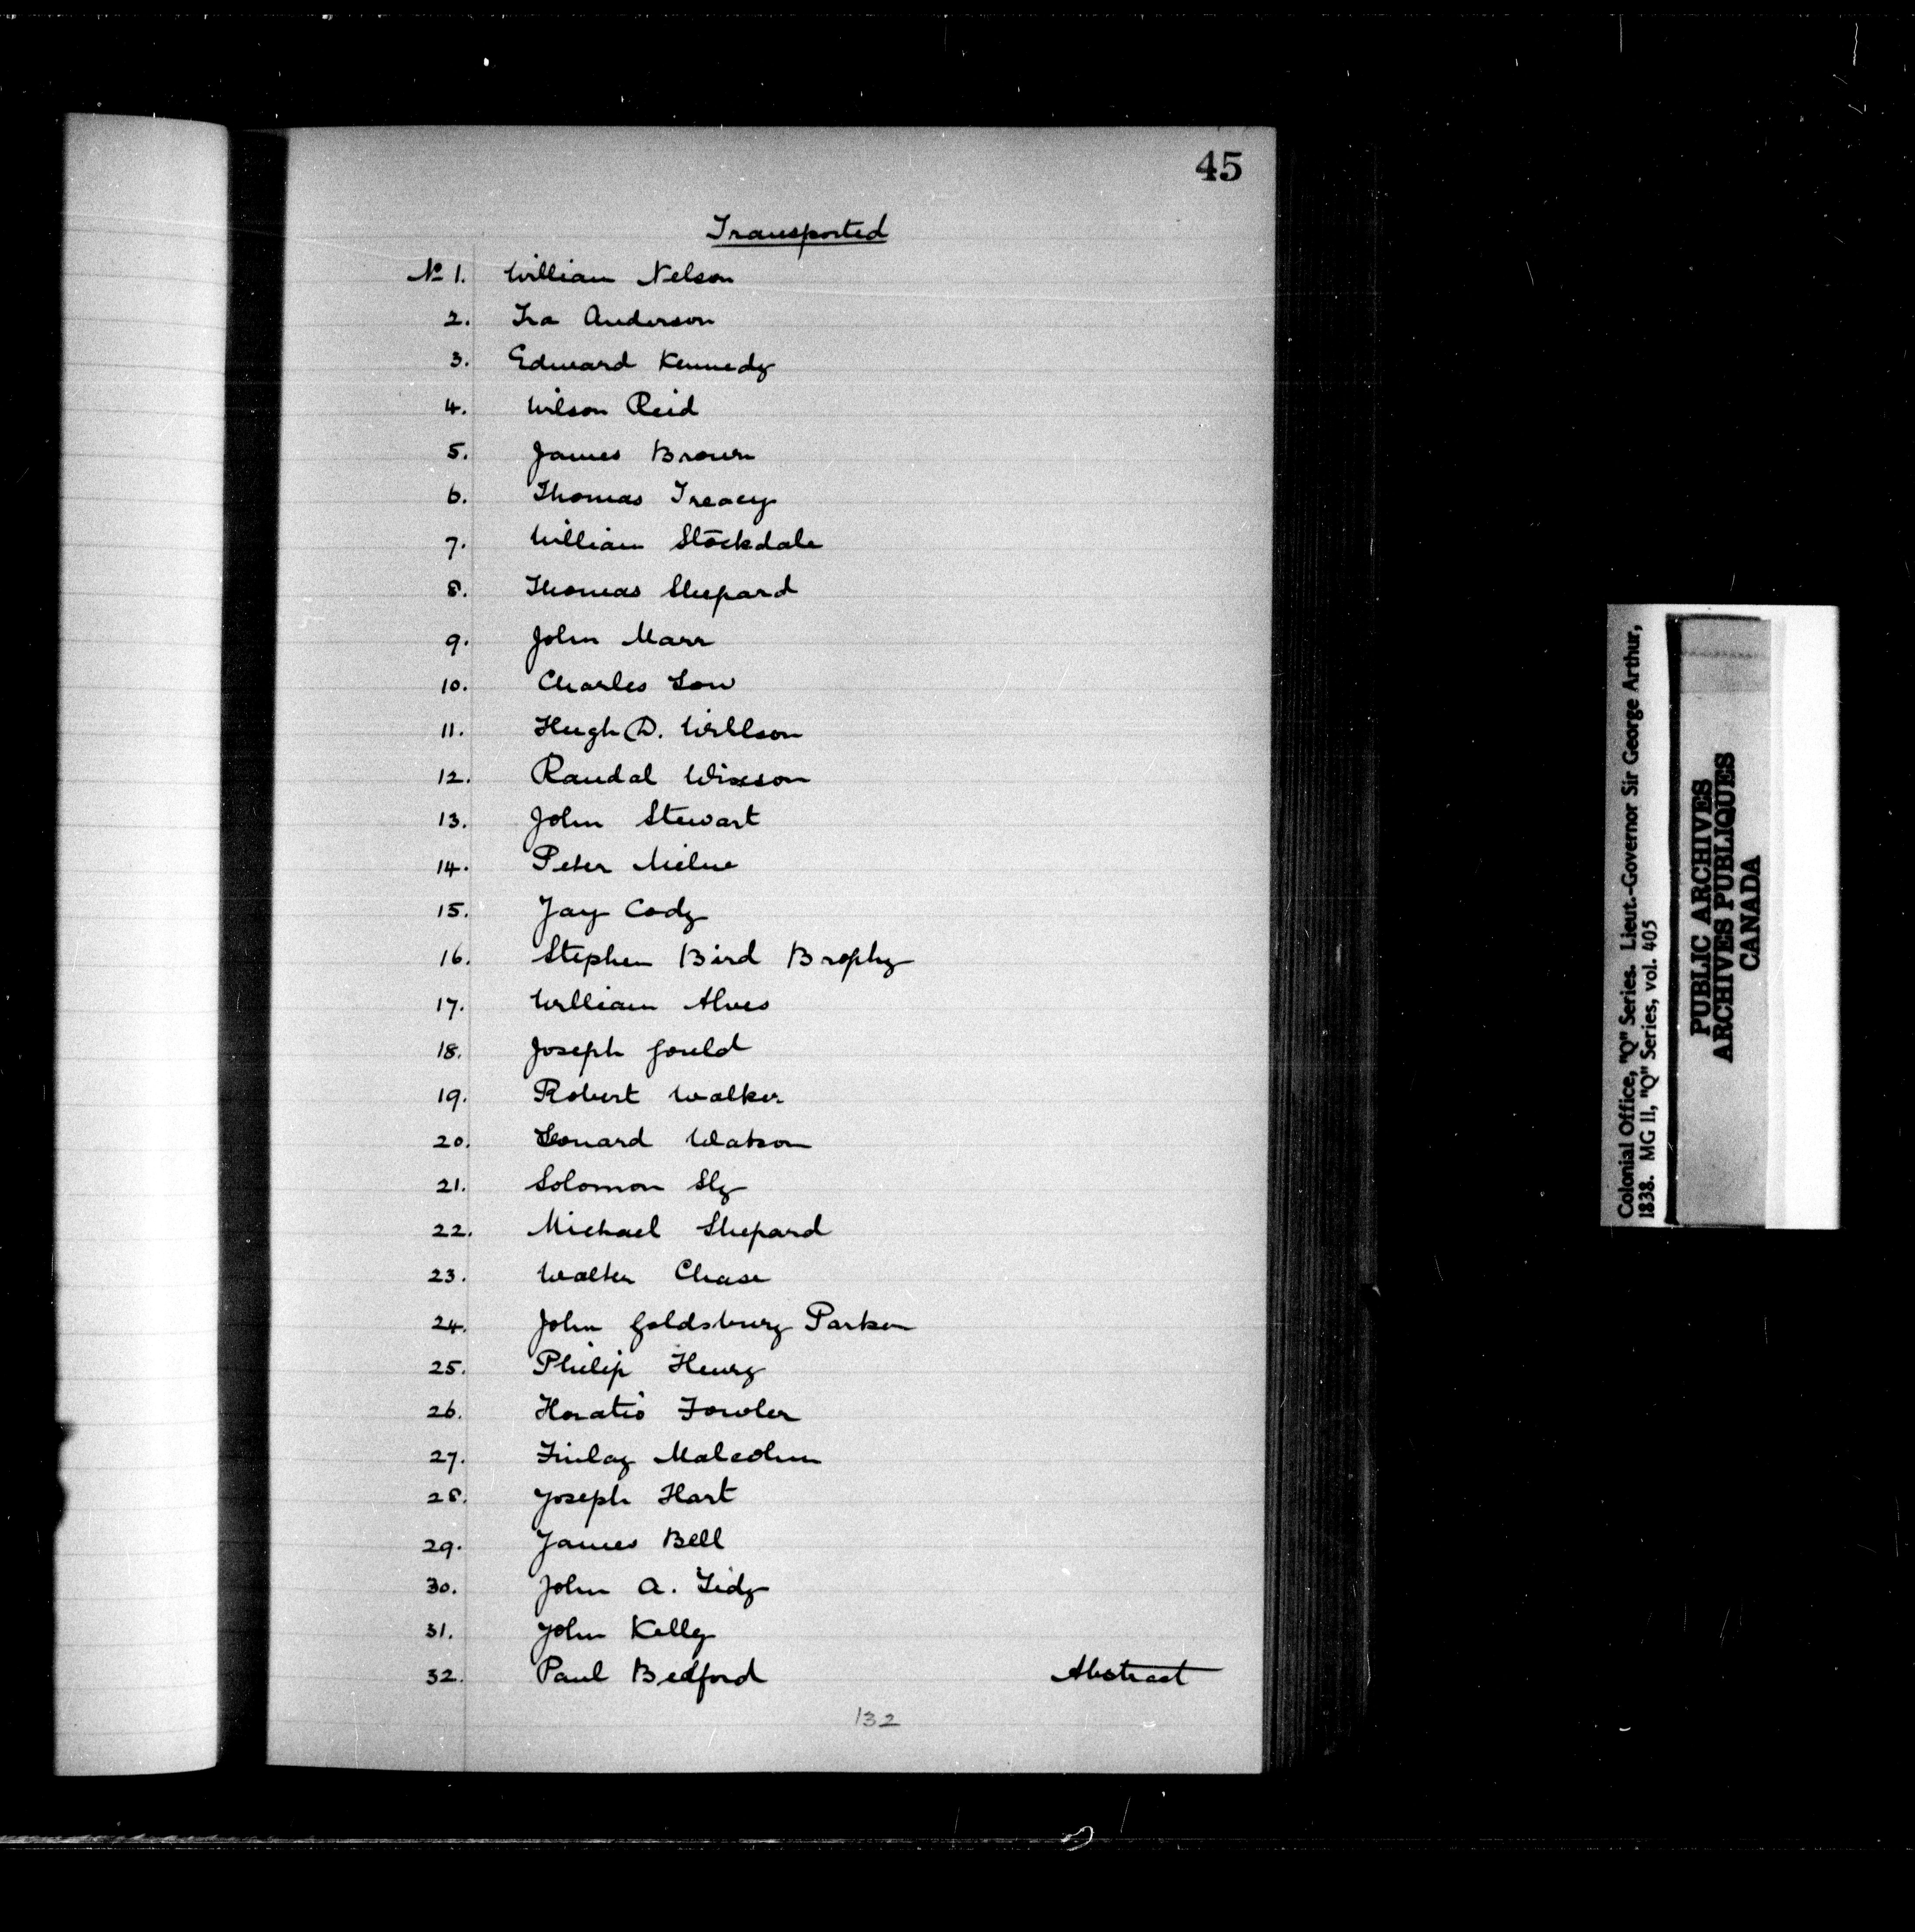 45
Transported
No 1. William Nelson
2. Ira Anderson
3. Edward Kennedy
4. Wilson Reid
5. James Brown
6. Thomas Treacy
7. William Stockdale
8. Thomas Shepard
9. John Marr
10. Charles Low
11. Hugh D. Willson
12. Randal Wixson
13. John Stewart
14. Peter Milne
15. Jay Cody
16. Stephen Bird Brophy
17. William Alves
18. Joseph Gould
19. Robert Walker
20. Leonard Watson
21. Solomon Sly
22. Michael Shepard
23. Walter Chase
24. John Goldsbury Parker
25. Philip Henry
26. Horatio Fowler
27. Finlay Malcolm
28. Joseph Hart
29. James Bell
30. John A. Tidy
31. John Kelly
32. Paul Bedford Abstract
132
Colonial Office, "Q" Series. Lieut.-Governor Sir George Arthur,
1838. MG 11, "Q" Series, vol. 405
PUBLIC ARCHIVES
ARCHIVES PUBLIQUES
CANADA